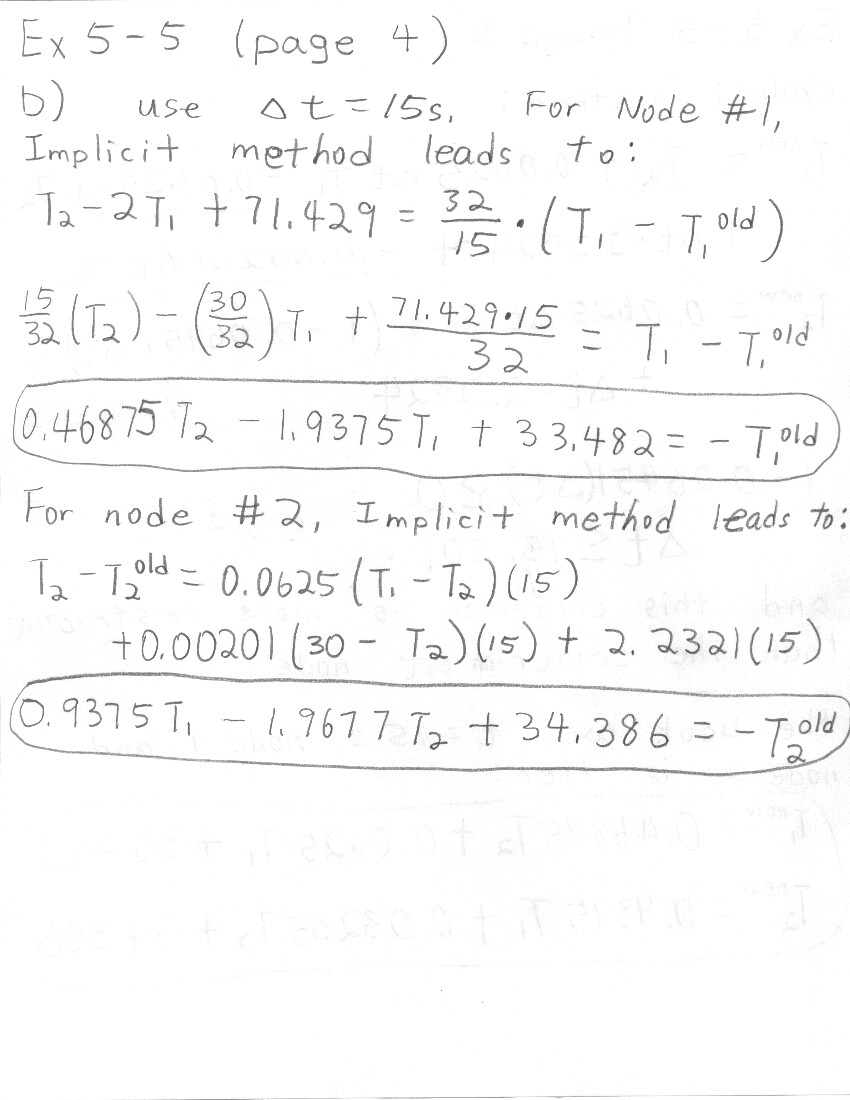 Ex 5-5 (page 4)
b) use Δt = 15s. For Node #1,
Implicit method leads to:
T₂ - 2T₁ + 71.429 = 32/15 · (T₁ - T₁^old)
15/32 (T₂) - (30/32) T₁ + 71.429·15/32 = T₁ - T₁^old
0.46875 T₂ - 1.9375 T₁ + 33.482 = - T₁^old
For node #2, Implicit method leads to:
T₂ - T₂^old = 0.0625 (T₁ - T₂)(15)
+0.00201 (30 - T₂)(15) + 2.2321(15)
0.9375 T₁ - 1.9677 T₂ + 34.386 = - T₂^old